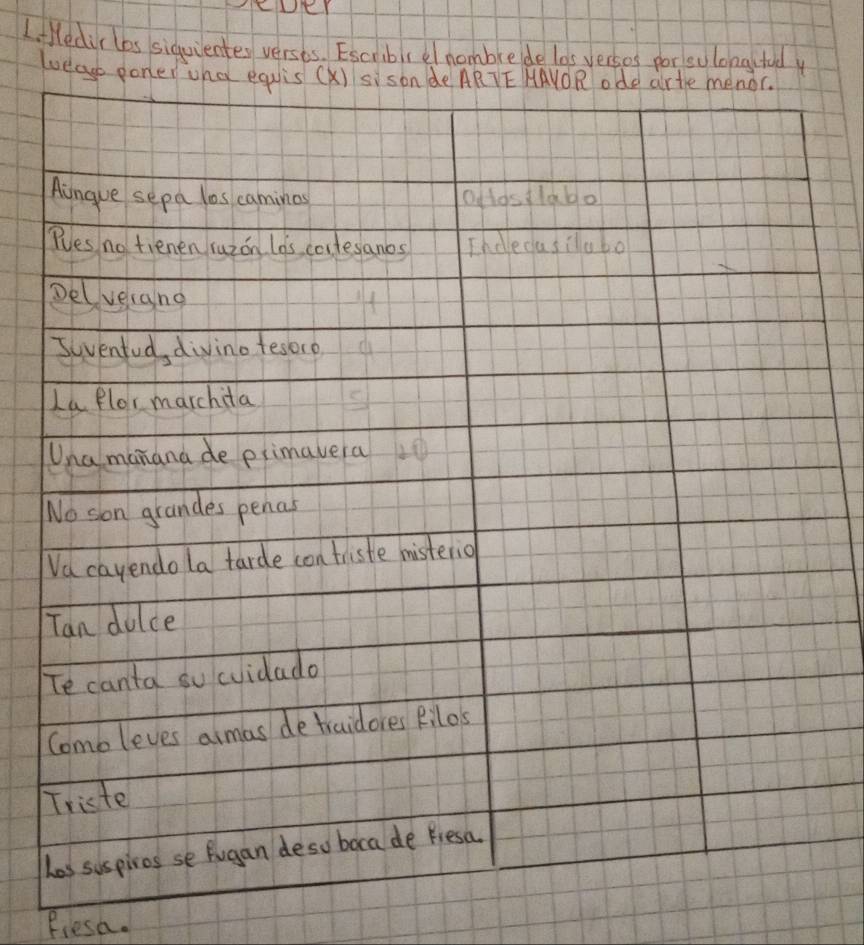 1. Medir los siguientes versos. Escribir el nombre de los versos por su longitud y
luego poner una equis (X) si son de ARTE MAYOR o de arte menor.
Aunque sepa los caminos Octosílabo
Pues no tienen razón los cortesanos Endecasílabo
Del verano 4
Juventud, divino tesoro 9
La flor marchita 5
Una mañana de primavera 10
No son grandes penas
Va cayendo la tarde con triste misterio
Tan dulce
Te canta su cuidado
Como leves armas de traidores filos
Triste
Los suspiros se fugan de su boca de fresa.
fresa.